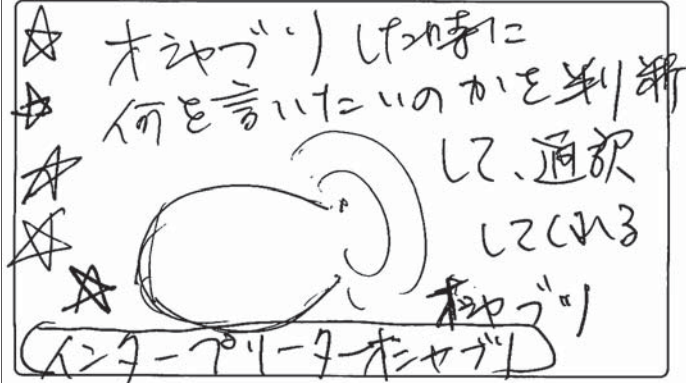 オシャブリした時に
何を言いたいのかを判断
して、通訳
してくれる
オシャブリ
インタープリーターオシャブリ